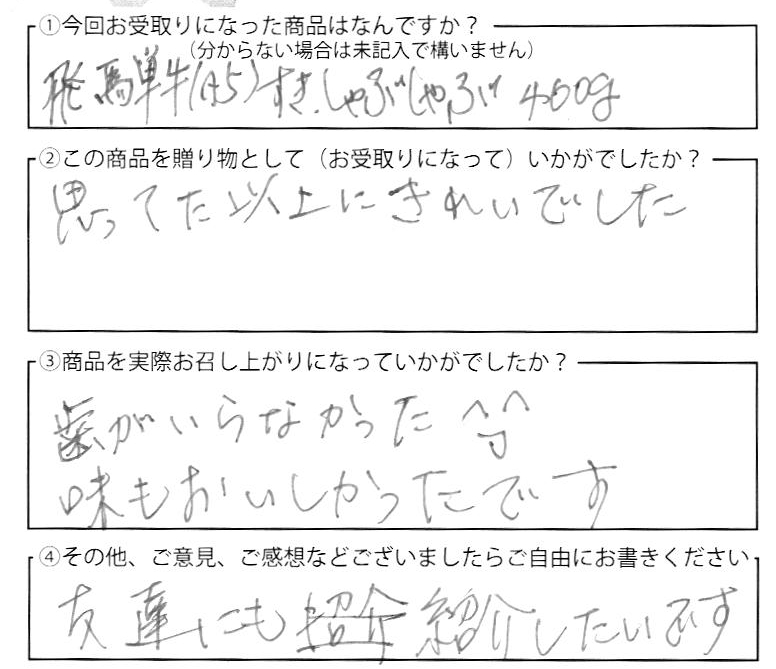 ①今回お受取りになった商品はなんですか？
（分からない場合は未記入で構いません）
飛騨牛(A5)すき.しゃぶしゃぶ
②この商品を贈り物として（お受取りになって）いかがでしたか？
思ってた以上にきれいでした
③商品を実際お召し上がりになっていかがでしたか？
歯がいらなかった ^^
味もおいしかったです
④その他、ご意見、ご感想などございましたらご自由にお書きください
友達にも紹介紹介したいです